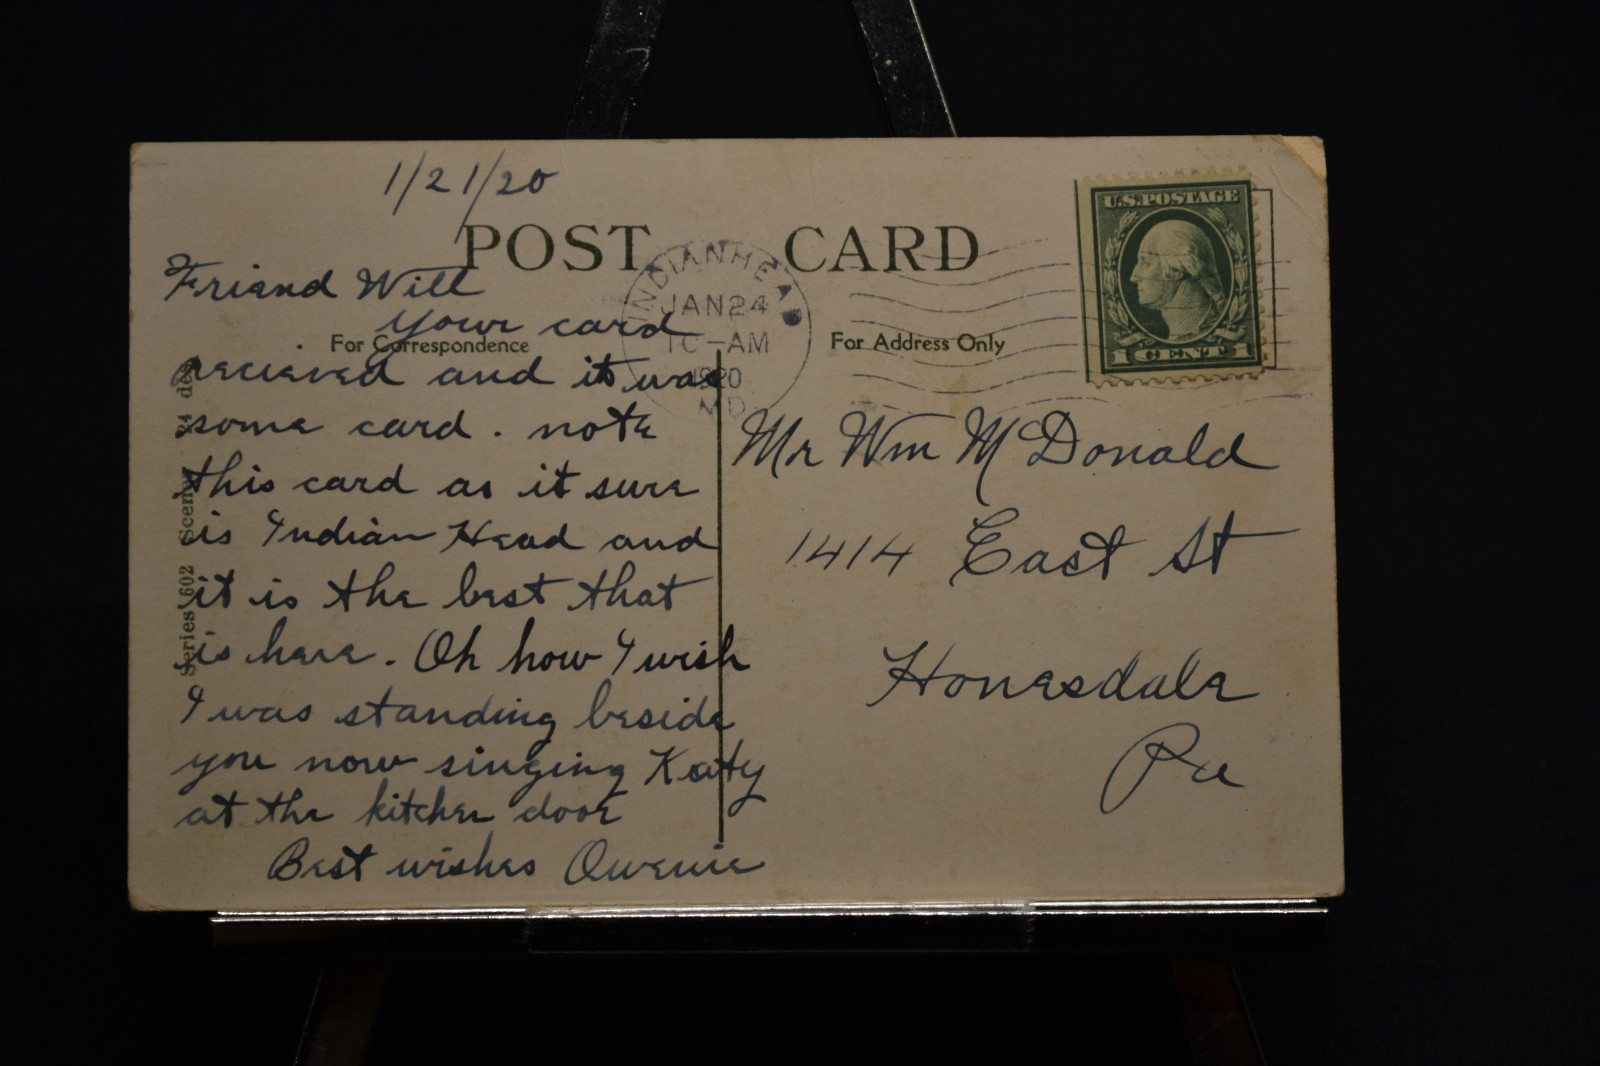 1/21/20
POST CARD
Friend Will
your card
For Correspondence
recieved and it was
some card. note
this card as it sure
is Indian Head and
it is the best that
is here. Oh how I wish
I was standing beside
you now singing Katy
at the kitchen door
Best wishes Owenie
Series 602 Scenes 24 des
INDIANHEAD
JAN 24
10-AM
1920
MD.
U.S. POSTAGE
1 CENT 1
For Address Only
Mr Wm McDonald
1414 East St
Honesdale
Pa